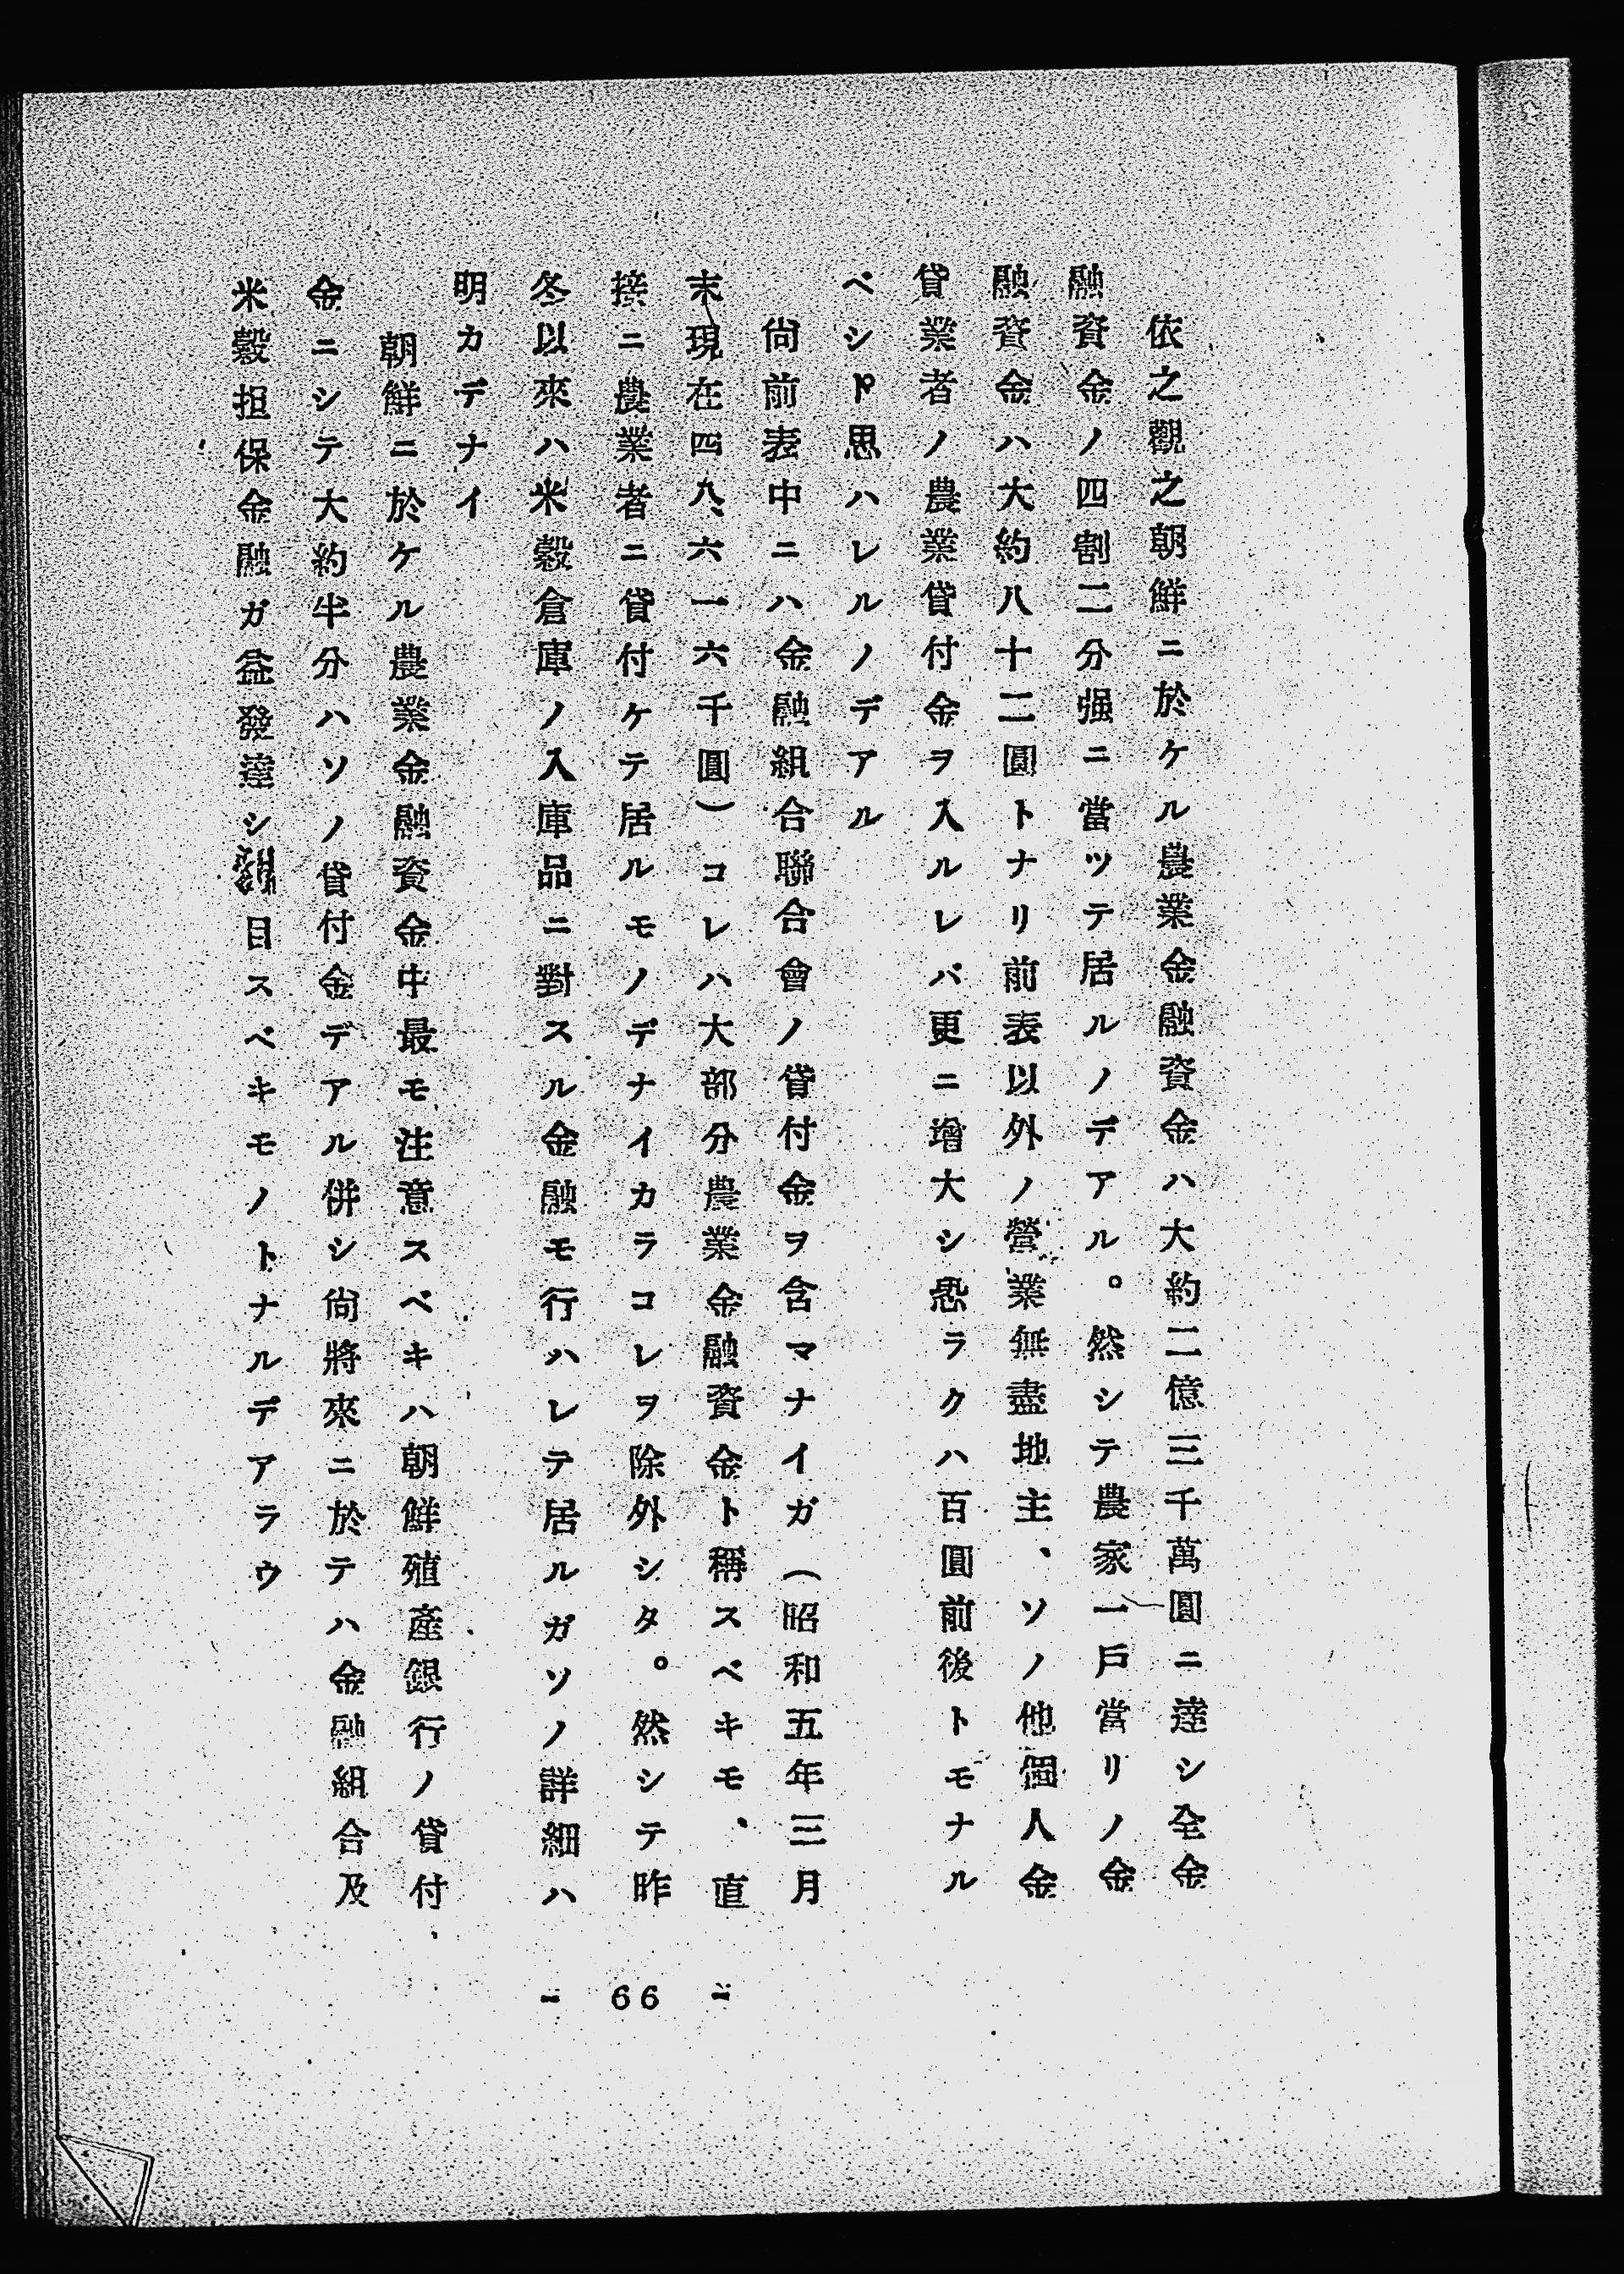 依之觀之朝鮮ニ於ケル農業金融資金ハ大約二億三千萬圓ニ達シ全金
融資金ノ四割二分强ニ當ツテ居ルノデアル。然シテ農家一戶當リノ金
融資金ハ大約八十二圓トナリ前表以外ノ營業無盡地主、ソノ他個人金
貸業者ノ農業貸付金ヲ入ルレバ更ニ增大シ恐ラクハ百圓前後トモナル
ベシト思ハレルノデアル
尙前表中ニハ金融組合聯合會ノ貸付金ヲ含マナイガ（昭和五年三月
末現在四九、六一六千圓）コレハ大部分農業金融資金ト稱スベキモ、直
接ニ農業者ニ貸付ケテ居ルモノデナイカラコレヲ除外シタ。然シテ昨
冬以來ハ米穀倉庫ノ入庫品ニ對スル金融モ行ハレテ居ルガソノ詳細ハ
明カデナイ
朝鮮ニ於ケル農業金融資金中最モ注意スベキハ朝鮮殖產銀行ノ貸付
金ニシテ大約半分ハソノ貸付金デアル併シ尙將來ニ於テハ金融組合及
米穀担保金融ガ益發達シ目スベキモノトナルデアラウ
- 66 -